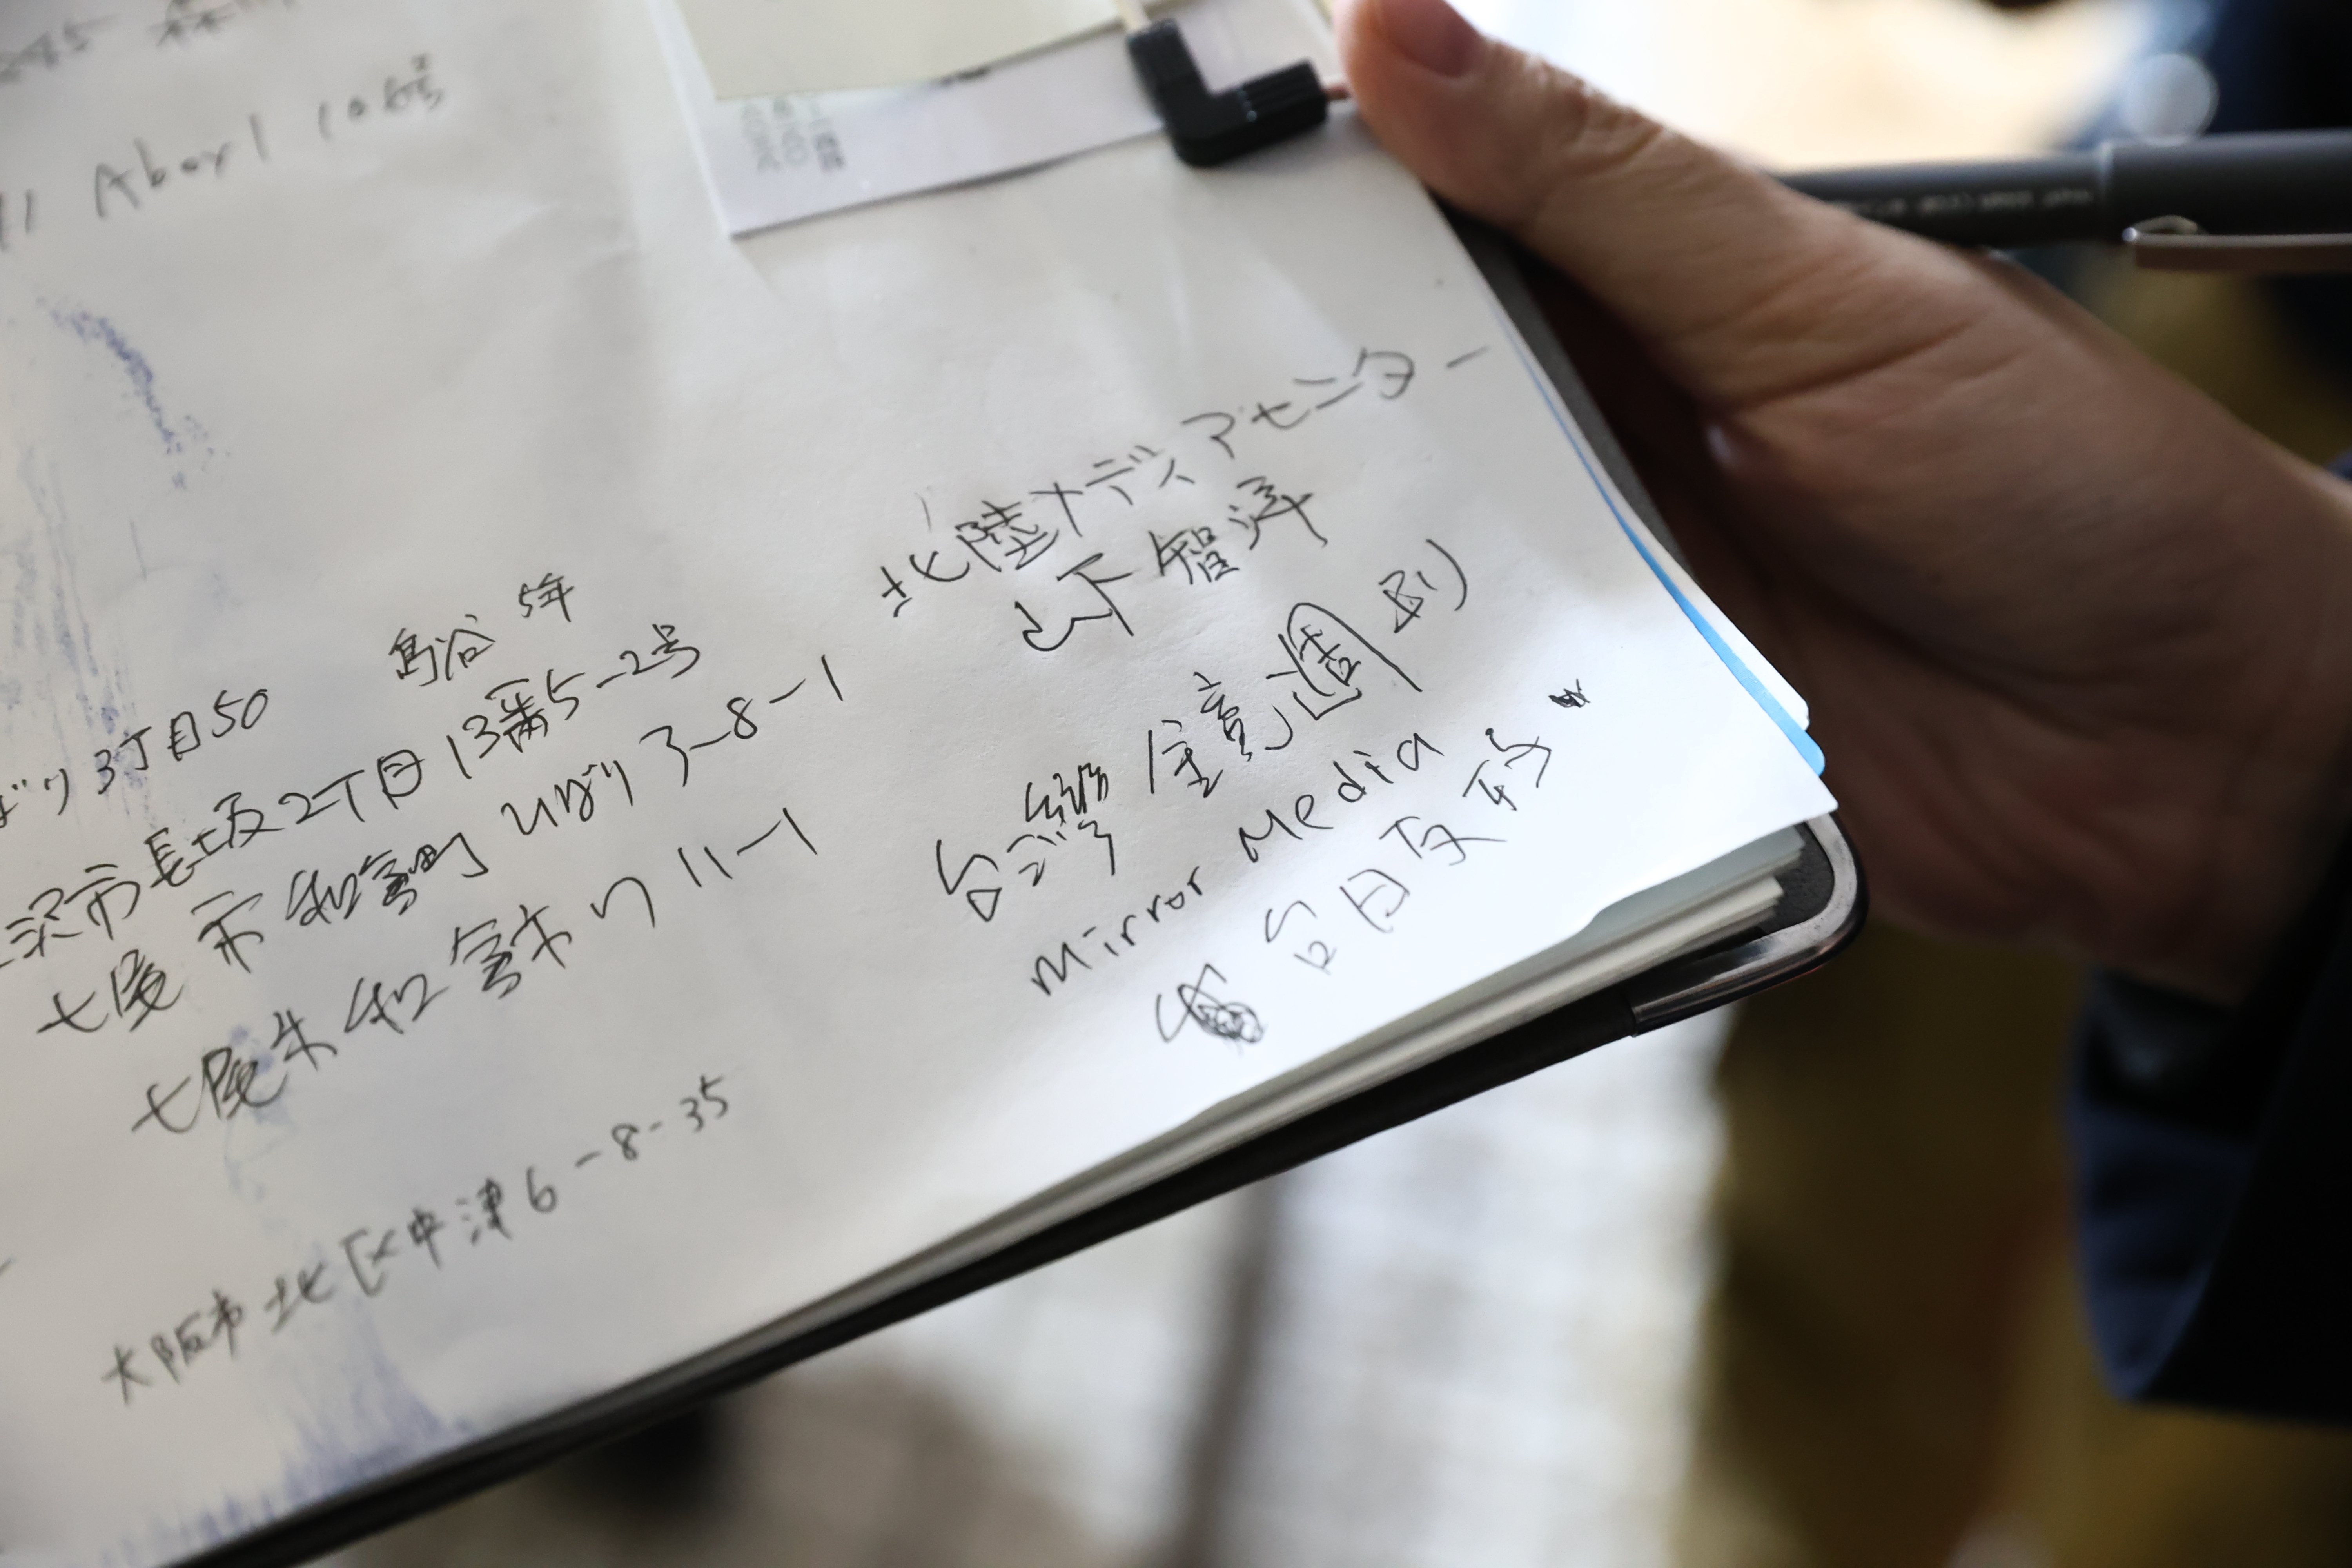 Aboy 1 10号
島谷 5年
3丁目50
沢市長坂2丁目13番5-2号
七尾市和倉町ひばり3-8-1
七尾市和倉町 11-1
大阪市北区中津6-8-35
北陸メディアセンター
山下智洋
台灣 鏡週刊
Mirror Media
台日友好